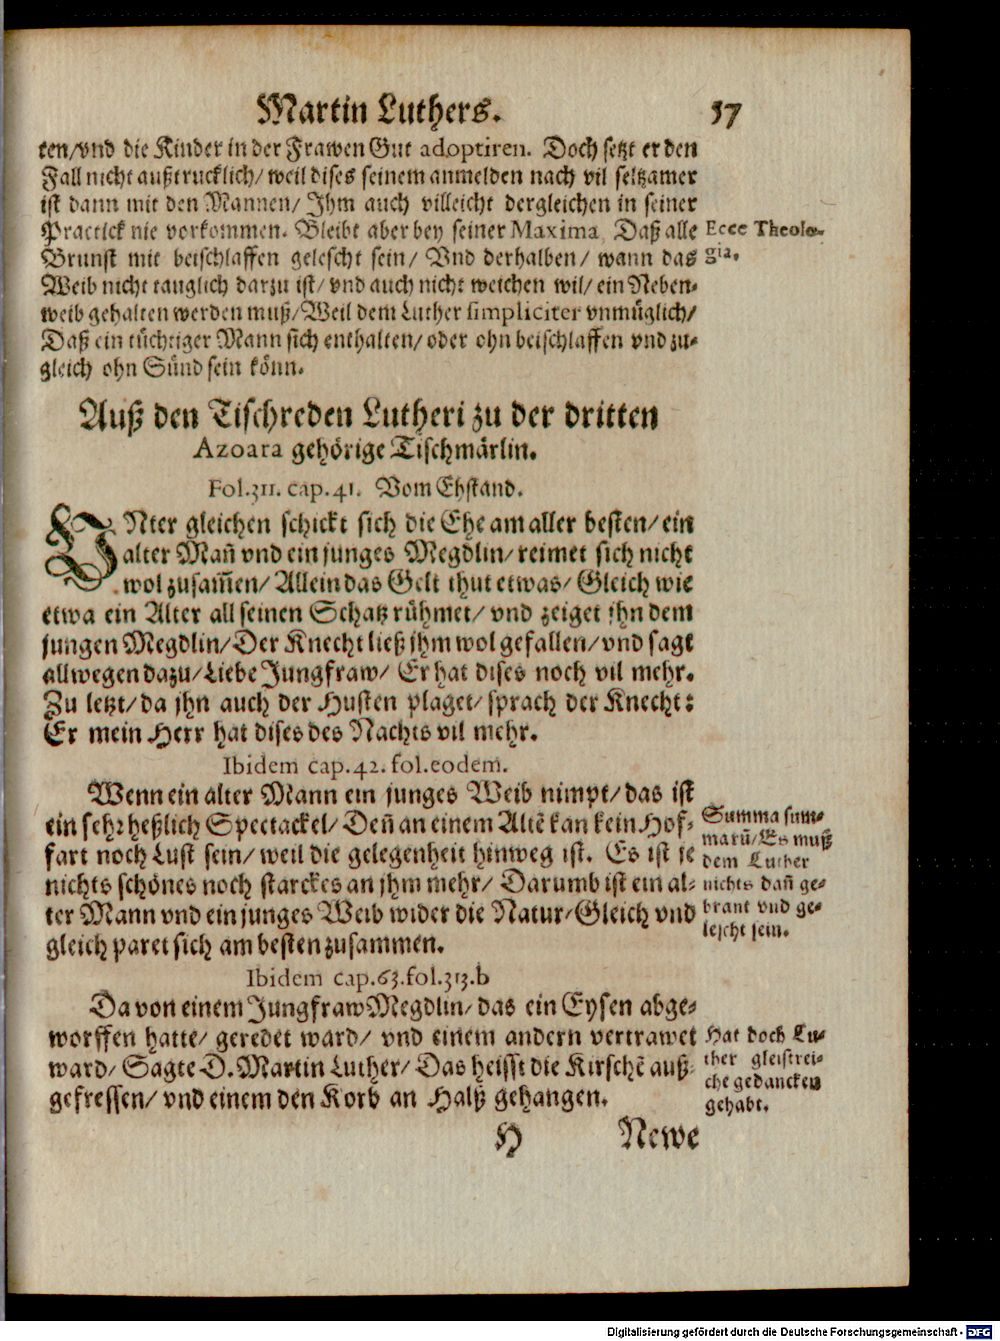 Martin Luthers. 57
ten/vnd die Kinder in der Frawen Gut adoptiren. Doch setzt er den
Fall nicht außtrucklich/ weil dises seinem anmelden nach vil seltzamer
ist dann mit den Mannen/ Ihm auch villeicht dergleichen in seiner
Practick nie vorkommen. Bleibt aber bey seiner Maxima, Daß alle
Brunst mit beischlaffen gelescht sein/ Vnd derhalben/ wann das
Weib nicht tauglich darzu ist/ vnd auch nicht weichen wil/ ein Neben⸗
weib gehalten werden muß/ Weil dem Luther simpliciter vnmüglich/
Daß ein tüchtiger Mann sich enthalten/ oder ohn beischlaffen vnd zu⸗
gleich ohn Sünd sein könn.
Ecce Theolo-
gia.
Auß den Tischreden Lutheri zu der dritten
Azoara gehörige Tischmärlin.
Fol.311. cap.41. Vom Ehstand.
VNter gleichen schickt sich die Ehe am aller besten/ ein
alter Mañ vnd ein junges Megdlin/ reimet sich nicht
wol zusam̃en/ Allein das Gelt thut etwas/ Gleich wie
etwa ein Alter all seinen Schatz rühmet/ vnd zeiget jhn dem
jungen Megdlin/ Der Knecht ließ jhm wol gefallen/ vnd sagt
allwegen dazu/ Liebe Jungfraw/ Er hat dises noch vil mehr.
Zu letzt/ da jhn auch der Husten plaget/ sprach der Knecht:
Er mein Herr hat dises des Nachts vil mehr.
Ibidem cap.42. fol.eodem.
Wenn ein alter Mann ein junges Weib nimpt/ das ist
ein sehr heßlich Spectackel/ Deñ an einem Altẽ kan kein Hof⸗
fart noch Lust sein/ weil die gelegenheit hinweg ist. Es ist je
nichts schönes noch starckes an jhm mehr/ Darumb ist ein al⸗
ter Mann vnd ein junges Weib wider die Natur/ Gleich vnd
gleich paret sich am besten zusammen.
Summa sum⸗
marũ/ Es muß
dem Luther
nichts dañ ge⸗
brant vnd ge⸗
lescht sein.
Ibidem cap.63.fol.313.b
Da von einem Jungfraw Megdlin/ das ein Eysen abge⸗
worffen hatte/ geredet ward/ vnd einem andern vertrawet
ward/ Sagte D. Martin Luther/ Das heisst die Kirschẽ auß⸗
gefressen/ vnd einem den Korb an Halß gehangen.
Hat doch Lu⸗
ther gleistrei⸗
che gedancken
gehabt.
H Newe
Digitalisierung gefördert durch die Deutsche Forschungsgemeinschaft - DFG